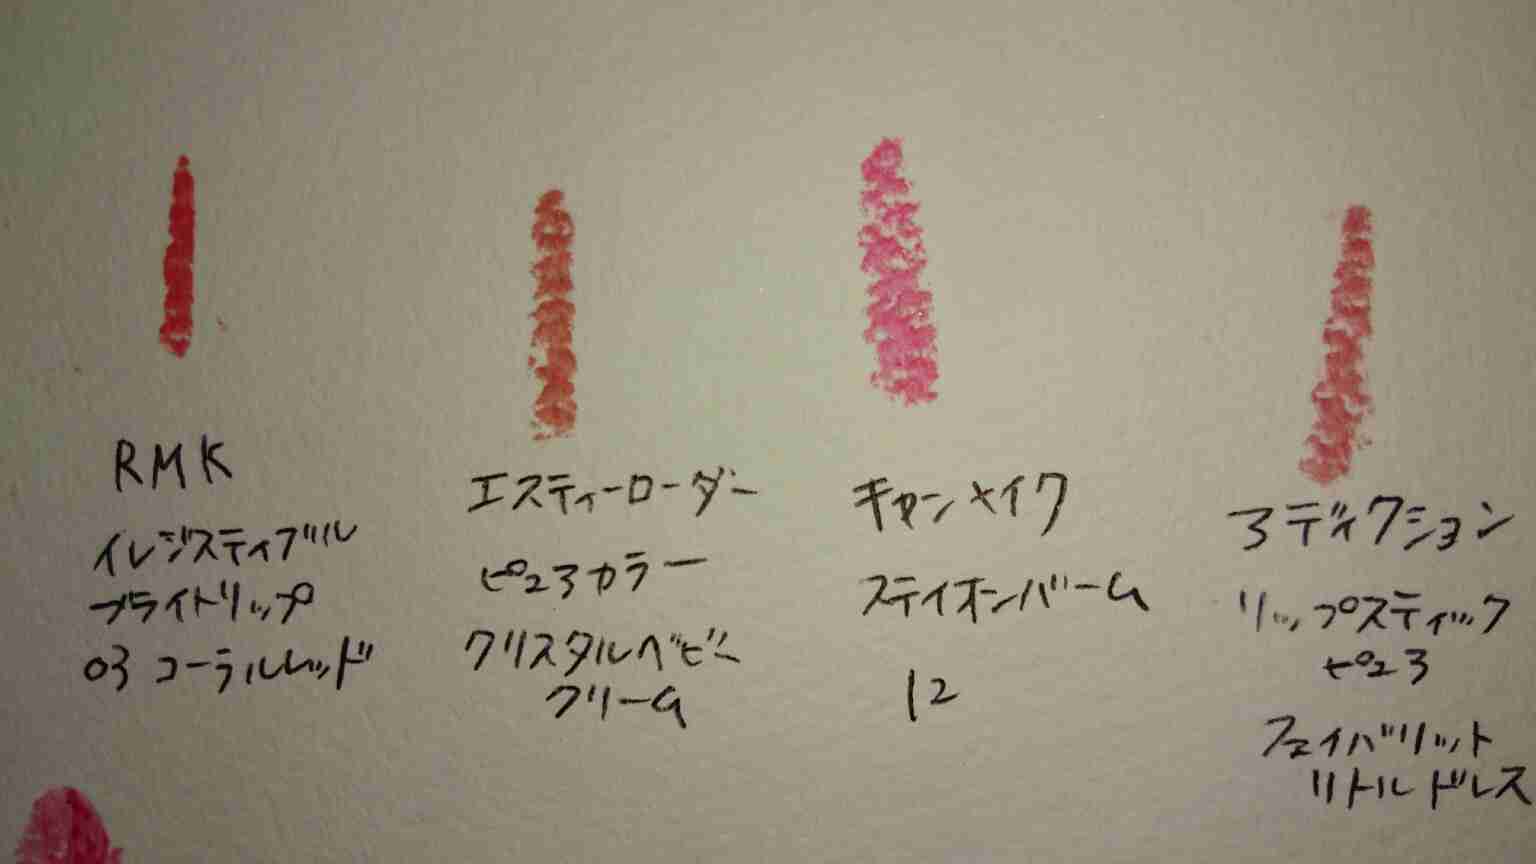 RMK
イレジスティブル
ブライトリップ
03 コーラルレッド
エスティーローダー
ピュアカラー
クリスタルベビー
クリーム
キャンメイク
ステイオンバーム
12
アディクション
リップスティック
ピュア
フェイバリット
リトルドレス